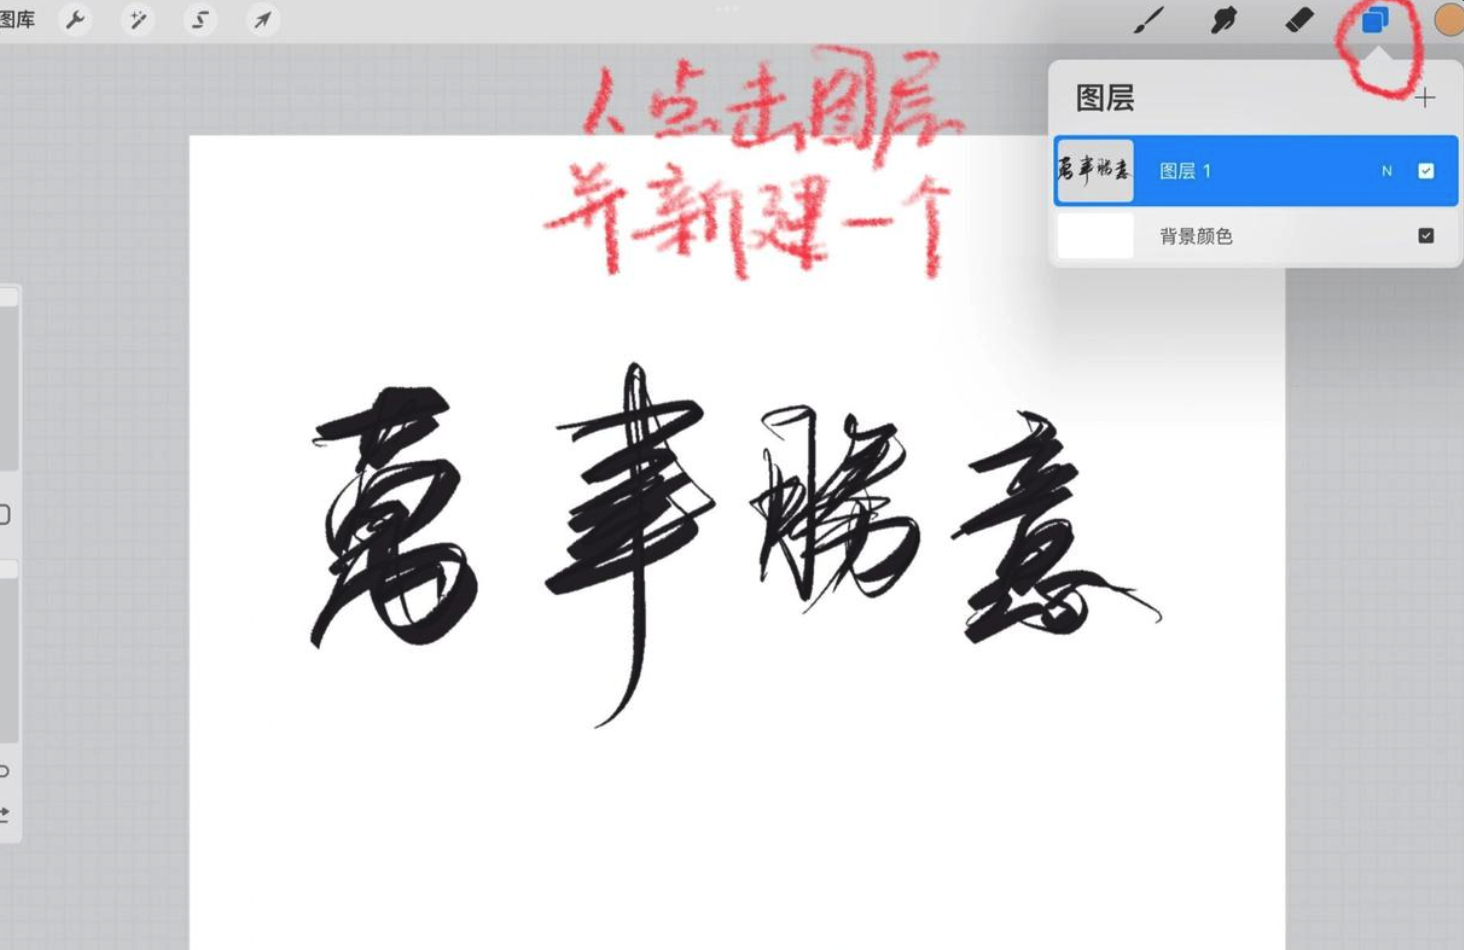 图库
1、点击图层
并新建一个
图层
图层 1
N
背景颜色
萬事勝意